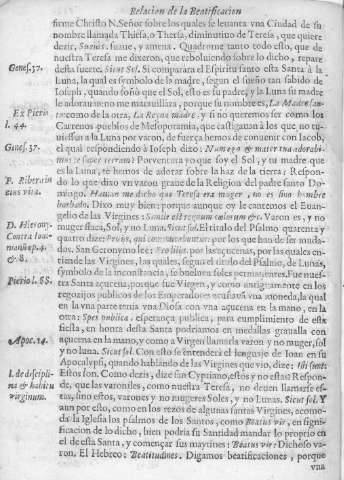 Relacion de la Beatificacion
firme Christo N. Señor sobre los quales se leuanta vna Ciudad de su
nombre llamada Thisa, o Thersa, diminutiuo de Teresa, que quiere
dezir, Suauis, suaue, y amena. Quadrome tanto todo esto, que de
nuestra Teresa me dizeron, que reboluiendo sobre lo dicho, repare
Genes. 37.
desta suerte, Sicut Sol. Si comparara el Espiritu santo esta Santa à la
Luna, la qual es symbolo de la muger, segun el sueño tan sabido de
Ioseph, quando soñò que el Sol, esto es su padre, y la Luna su madre
le adorauan no me marauillàra, porque su nombre es, La Madre san-
Ex Pierio
l. 44.
como de la otra, La Reyna madre. y si no queremos ser como los
Carrenos pueblos de Mesopotamia, que castigauan à los que no tu-
uiessen a la Luna por varon, de fuerça hemos de conuenir con Iacob,
Genes. 37.
el qual respondiendo à Ioseph dixo: Num ego & mater tua adorabi-
mus te super terram? Por ventura yo que soy el Sol, y tu madre que
es la Luna, te hemos de adorar sobre la haz de la tierra? Respon-
P. Ribera in
eius vita.
do lo que dixo vn varon graue de la Religion del padre santo Do-
mingo. Hauian me dicho que Teresa era muger, no es sino hombre
barbado. Dixo muy bien; porque aunque oy le cantemos el Euan-
gelio de las Virgines: Simile est regnum cælorum &c. Varon es, y no
D. Hierony.
Contra Ioui-
manū ep. 4
& 8.
muger flaca, Sol, y no Luna. Sicut Sol. El titulo del Psalmo quarenta y
quatro dize: Pro ijs, qui commutabuntur: por los que han de ser muda-
dos. San Geronymo lee: Pro lilijs. por las açucenas, por las quales en-
tiende las Virgines, las quales, segun el titulo del Psalmo, de Lunas,
symbolo de la inconstancia, se buelue a soles permanentes. Fue nues-
Pierio l. 55.
tra Santa açucena, porque fue Virgen, y como antiguamente en los
regozijos publicos de los Emperadores acuñaua vna moneda, la qual
en la vna parte tenia vna Diosa con vna açucena en la mano, en la
otra: Spes publica. esperança publica, para cumplimiento de esta
fiesta, en honra desta Santa podriamos en medallas graualla con
Apoc. 14.
açucena en la mano, y como a Virgen llamarla varon y no muger, sol
y no luna. Sicut sol. Con esto se entenderà el lenguaje de Ioan en su
Apocalypsi, quando hablando de las Virgines que vio, dize: Ibi sunt.
l. de discipli-
na & habitu
virginum.
Estos son. Como dezis, dize san Cypriano, estos y no estas? Respon-
de, que las varoniles, como nuestra Teresa, no deuen llamarse es-
tas, sino estos, varones y no mugeres Soles, y no Lunas. Sicut sol. Y
aun por esto, como en los rezos de algunas santas Virgines, acomo-
da la Iglesia los psalmos de los Santos, como Beatus vir, en signifi-
ficacion de lo dicho, bien podria su Santidad mandar lo proprio en
el de esta Santa, y començar sus maytines: Beatus vir: Dichoso va-
ron. El Hebreo: Beatitudines. Digamos beatificaciones, porque
vna